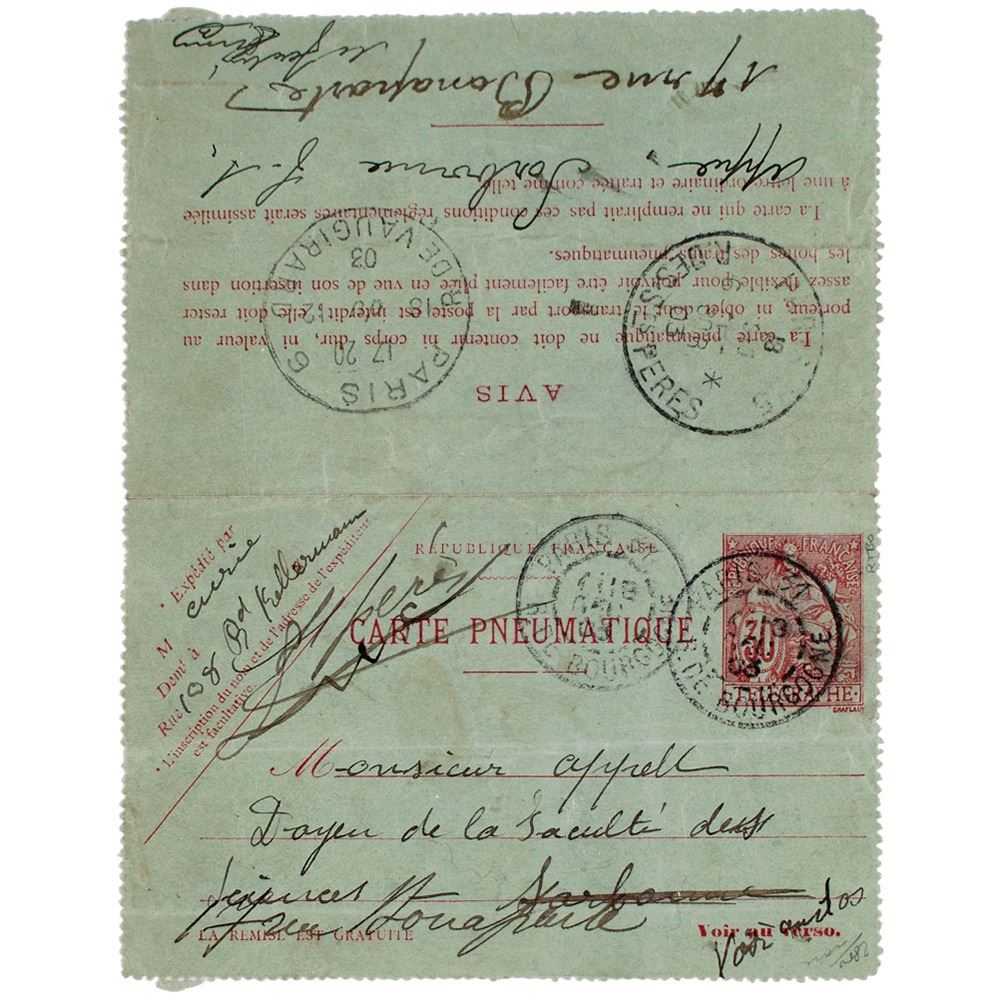 17 rue Bonaparte
appe. Sorbonne
à une lettre ordinaire et traitée comme telle
La carte qui ne remplirait pas ces conditions réglementaires serait assimilée
les boîtes des trains pneumatiques.
assez flexible pour pouvoir être facilement pliée en vue de son insertion dans
porteur, ni objet dont le transport par la poste est interdit; elle doit rester
La carte pneumatique ne doit contenir ni corps dur, ni valeur au
AVIS
PARIS 6
17 20
18 12
03
R. DE VAUGIRARD
R. DES STS PERES
RÉPUBLIQUE FRANÇAISE
CARTE PNEUMATIQUE
Expédié par
M curie
Demt à
Rue 108 Bd Kellermann
L'inscription du nom et de l'adresse de l'expéditeur
est facultative.
PARIS
R. DE BOURGOGNE
POSTE FRANÇAISE
30
TELEGRAPHE
CHAPLAIN
PARIS
R. DE BOURGOGNE
Monsieur appell
Doyen de la Faculté des
sciences Sorbonne
rue Bonaparte
LA REMISE EST GRATUITE
Voir au verso.
Voir au dos